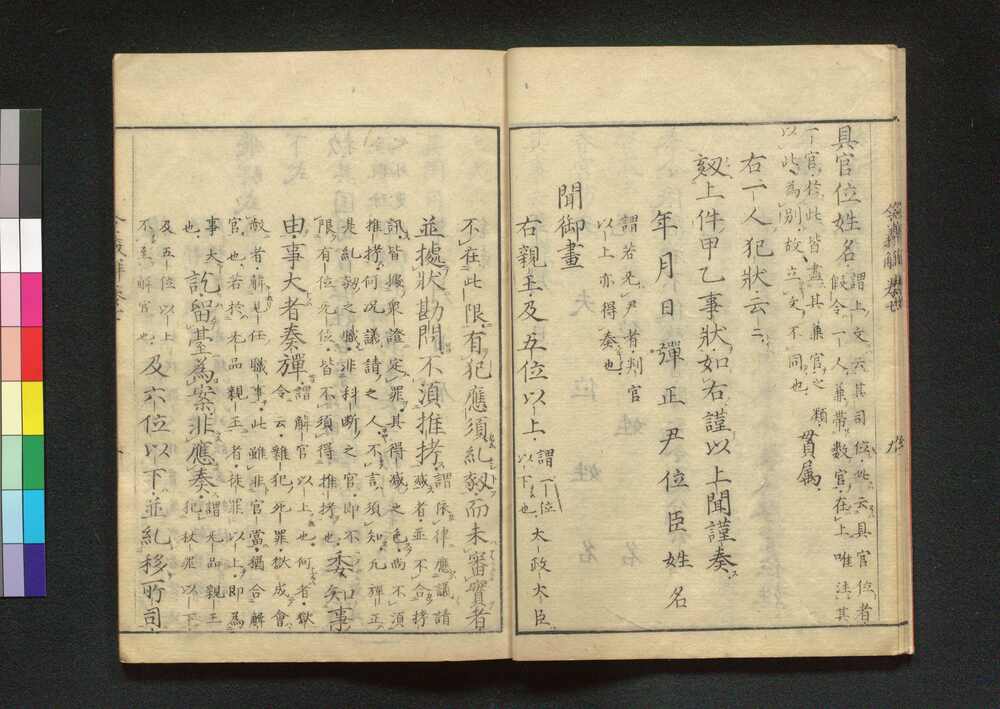 具官位姓名謂上文云某司位姓此云具官位者
假令一人兼帶數官在上唯注其
一官於此皆盡其兼官之類
以此為別故立文不同也貫属
右一人犯狀云云
劾上件甲乙事狀如右謹以上聞謹奏
年月日彈正尹位臣姓名
謂若无尹者判官
以上亦得奏也
聞御畫
右親王及五位以上謂一位以下也太政大臣
不在此限有犯應須糺劾而未審實者
並據狀勘問不須推拷謂依律應議請
減者並不合拷
訊皆據衆證定罪其得減之色尚不須
推拷何况議請之人不言須知凢彈正
是糺劾之職非科断之官即不
限有位无位皆不須得推拷也委知事
由事大者奏彈謂解官以上也何者獄
令云雜犯死罪獄成會
赦者解見任職事此雖非官當猶合解
官也若於无品親王者徒罪以上即為
事大也訖留臺為案非應奏謂无品親王
犯杖罪以下
及五位以上
不至解官也及六位以下並糺移所司